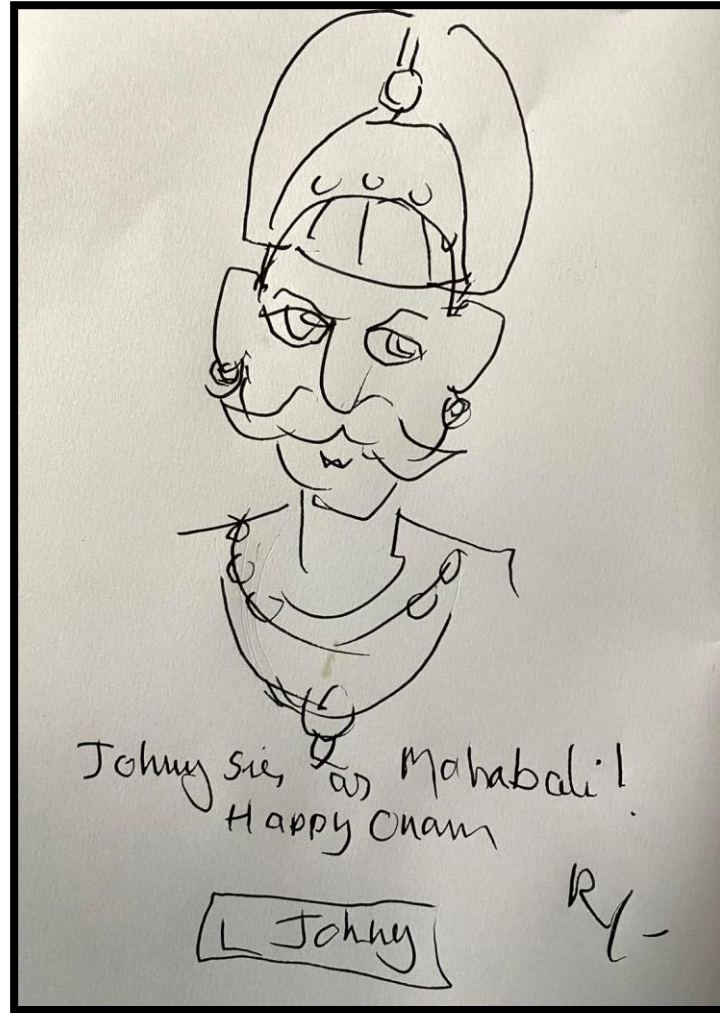 Johny sir, as Mahabali!
Happy Onam
L Johny